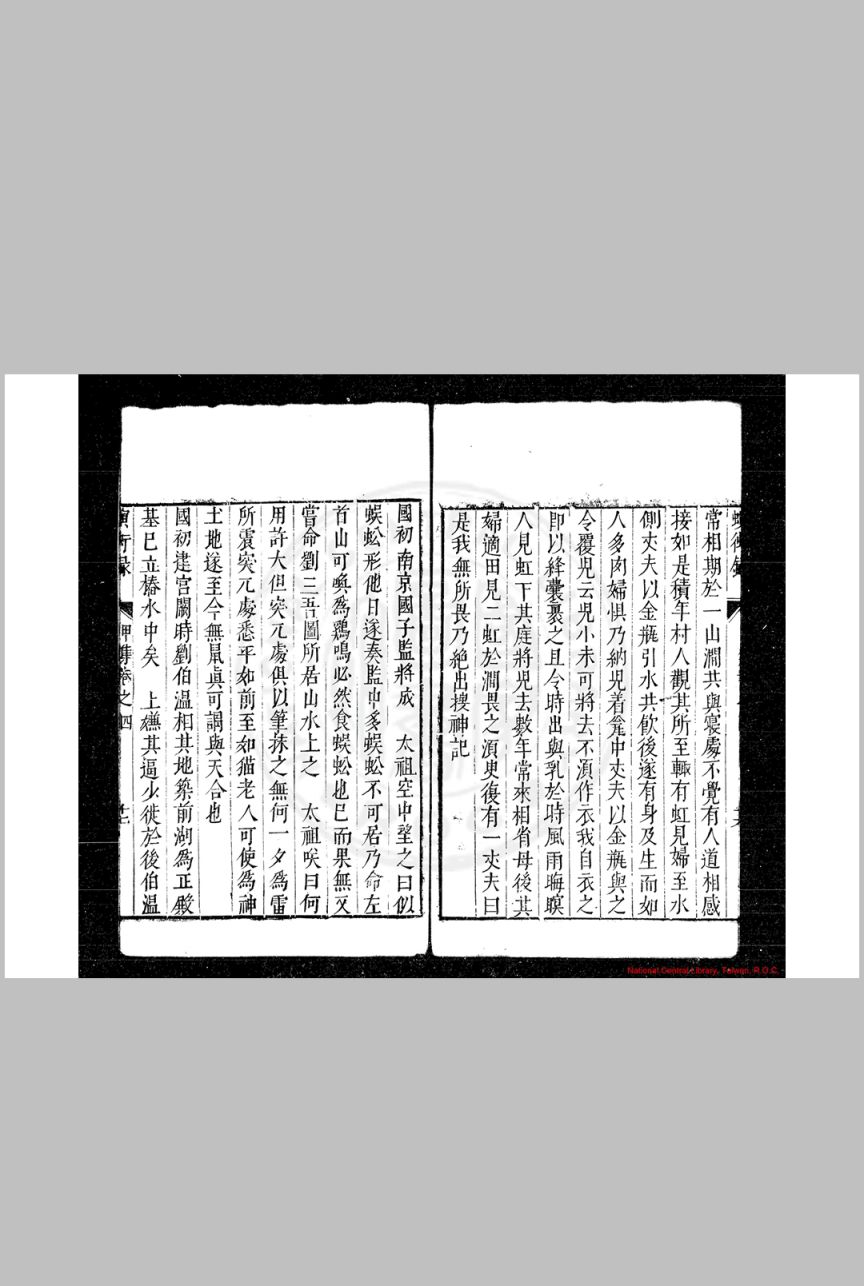 常相期於一山澗共與寢處不覺有人道相感
接如是積年村人觀其所至輒有虹見婦至水
側丈夫以金瓶引水共飲後遂有身及生而如
人多肉婦惧乃納児着瓮中丈夫以金瓶與之
令覆児云児小未可將去不湏作衣我自衣之
即以絳囊裹之且令時出與乳於時風雨晦暝
人見虹下其庭將児去數年常來相省母後其
婦適田見二虹於澗畏之湏臾復有一丈夫曰
是我無所畏乃絶出搜神記
國初南京國子監將成　太祖空中望之曰似
蜈蚣形他日遂奏監中多蜈蚣不可居乃命左
首山可喚為鷄鳴必然食蜈蚣也已而果無又
嘗命劉三吾圖所居山水上之　太祖咲曰何
用許大但突兀處俱以筆抹之無何一夕為雷
所震突兀處悉平如前至如猫老人可使為神
土地遂至今無鼠眞可謂與天合也
國初建宮闕時劉伯温相其地築前湖為正殿
基已立樁水中矣　上嫌其逼少徙於後伯温
甲集卷之四
National Central Library, Taiwan, R.O.C.